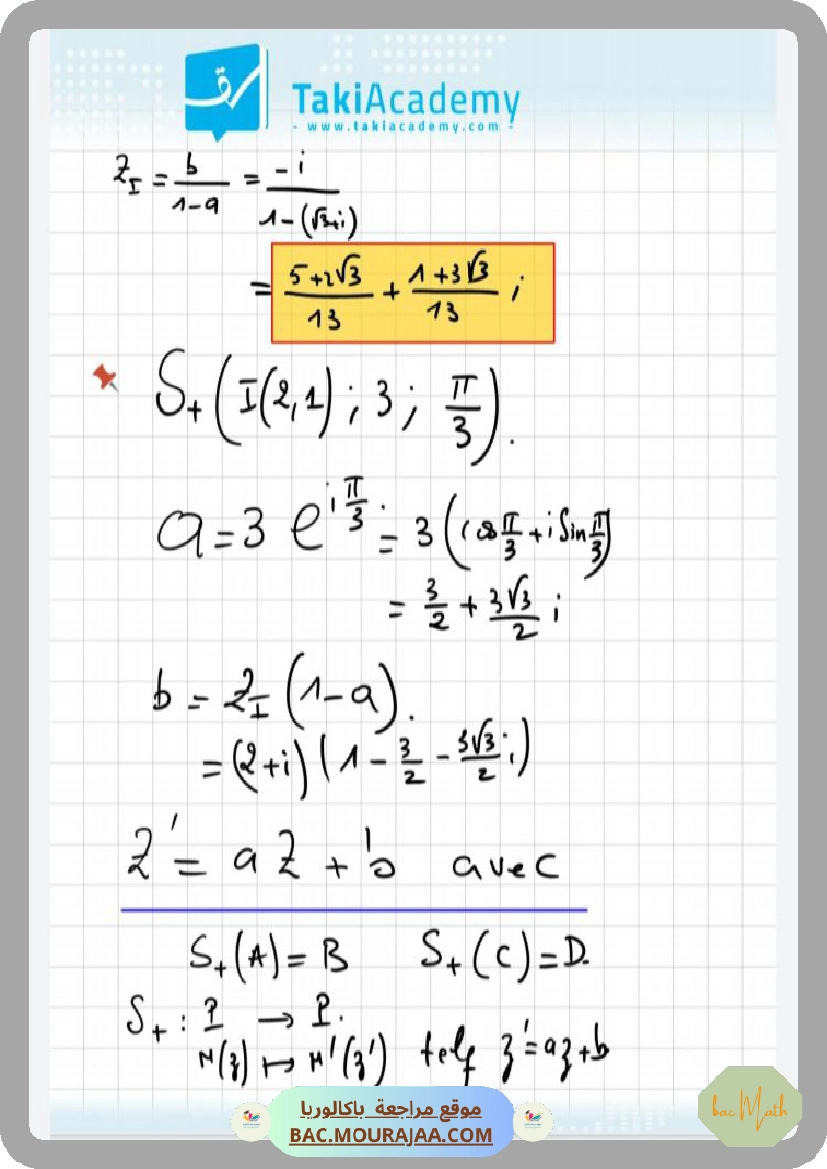 TakiAcademy
- www.takiacademy.com -
Z_I = b/(1-a) = -i/(1-(√3+i))
= (5+2√3)/13 + (1+3√3)/13 i
S₊(I(2,1) ; 3 ; π/3).
a = 3 e^(iπ/3) = 3(cos π/3 + i Sin π/3)
= 3/2 + 3√3/2 i
b = Z_I (1-a).
= (2+i)(1 - 3/2 - 3√3/2 i)
Z' = aZ + b avec
S₊(A) = B S₊(C) = D.
S₊ : P → P.
M(z) ↦ M'(z') telq z' = az+b
موقع مراجعة باكالوريا
BAC.MOURAJAA.COM
bac Math